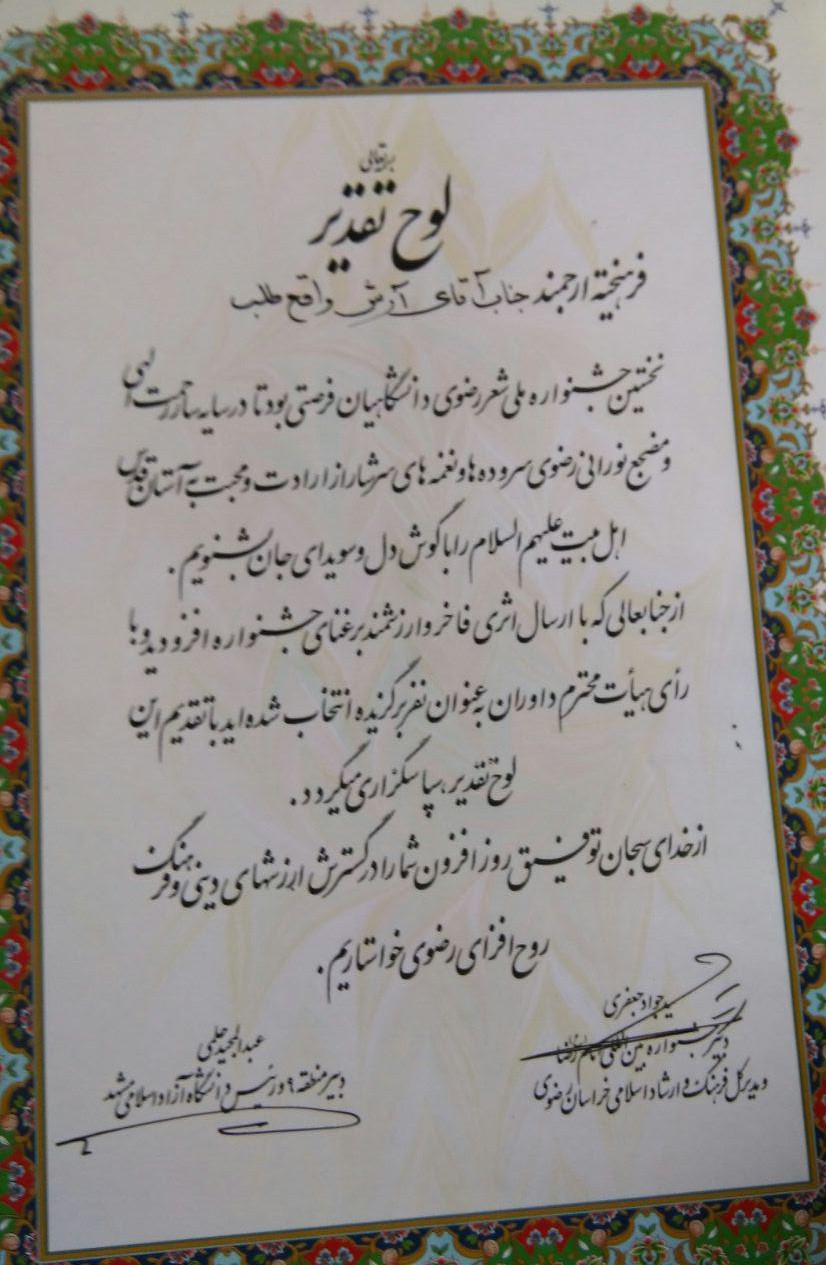 برتعالی
لوح تقدیر
فرهیخته ارجمند جناب آقای آرش واقع طلب
نخستین جشنواره ملی شعر رضوی دانشگاهیان فرصتی بود تا در سایه سار رحمت الهی
و مضجع نورانی رضوی سروده ها و نغمه های سرشار از ارادت و محبت به آستان قدس
اهل بیت علیهم السلام را با گوش دل و سویدای جان بشنویم.
از جنابعالی که با ارسال اثری فاخر و ارزشمند بر غنای جشنواره افزودید و با
رأی هیأت محترم داوران به عنوان نفر برگزیده انتخاب شده اید با تقدیم این
لوح تقدیر، سپاسگزاری میگردد.
از خدای سبحان توفیق روز افزون شما را در گسترش ارزشهای دینی و فرهنگ
روح افزای رضوی خواستاریم.
سید جواد جعفری
دبیر جشنواره بین المللی امام رضا
و مدیر کل فرهنگ و ارشاد اسلامی خراسان رضوی
عبدالمجید حلمی
دبیر منطقه ۹ و رئیس دانشگاه آزاد اسلامی مشهد